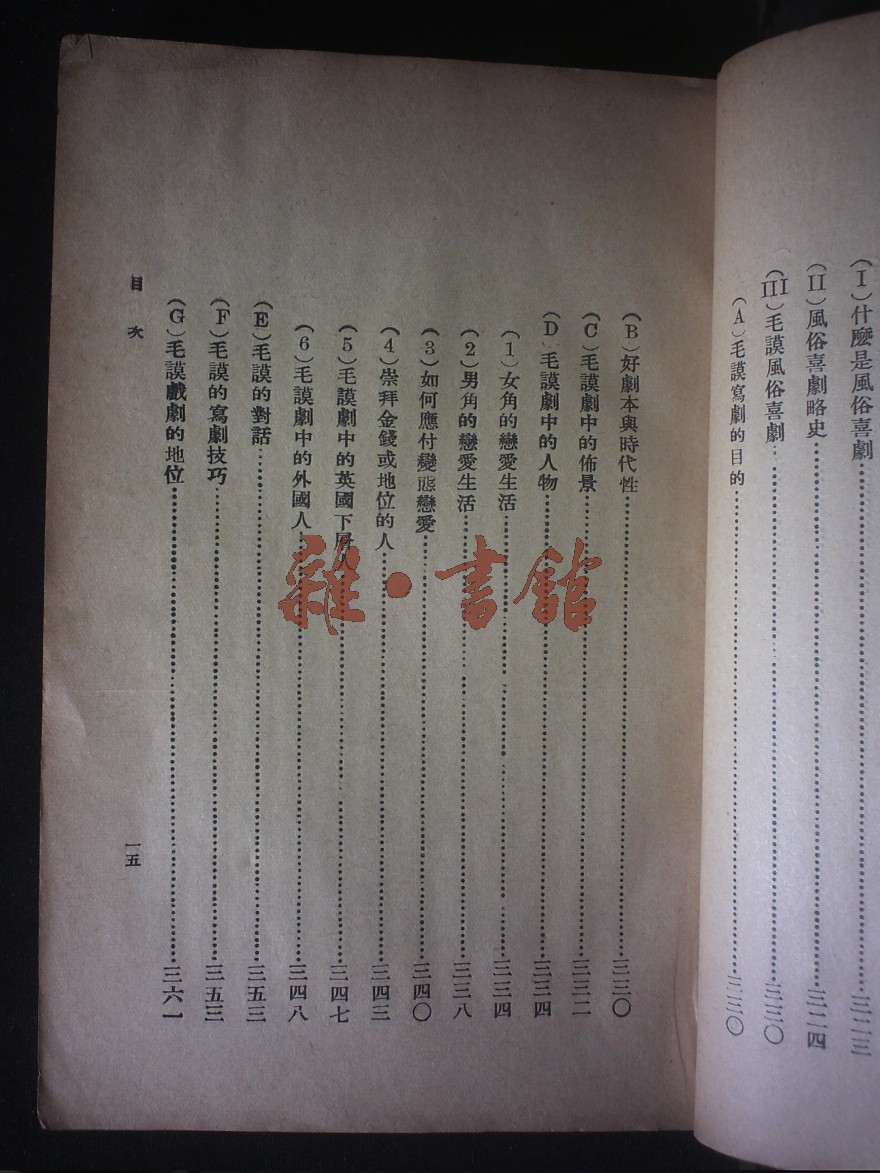 (I)什麼是風俗喜劇……三二三
(II)風俗喜劇略史……三二四
(III)毛謨風俗喜劇……三三〇
(A)毛謨寫劇的目的……三三〇
(B)好劇本與時代性……三三〇
(C)毛謨劇中的佈景……三三二
(D)毛謨劇中的人物……三三四
(1)女角的戀愛生活……三三四
(2)男角的戀愛生活……三三八
(3)如何應付變態戀愛……三四〇
(4)崇拜金錢或地位的人……三四三
(5)毛謨劇中的英國下層人……三四七
(6)毛謨劇中的外國人……三四八
(E)毛謨的對話……三五三
(F)毛謨的寫劇技巧……三五三
(G)毛謨戲劇的地位……三六一
目次
一五
雜·書館